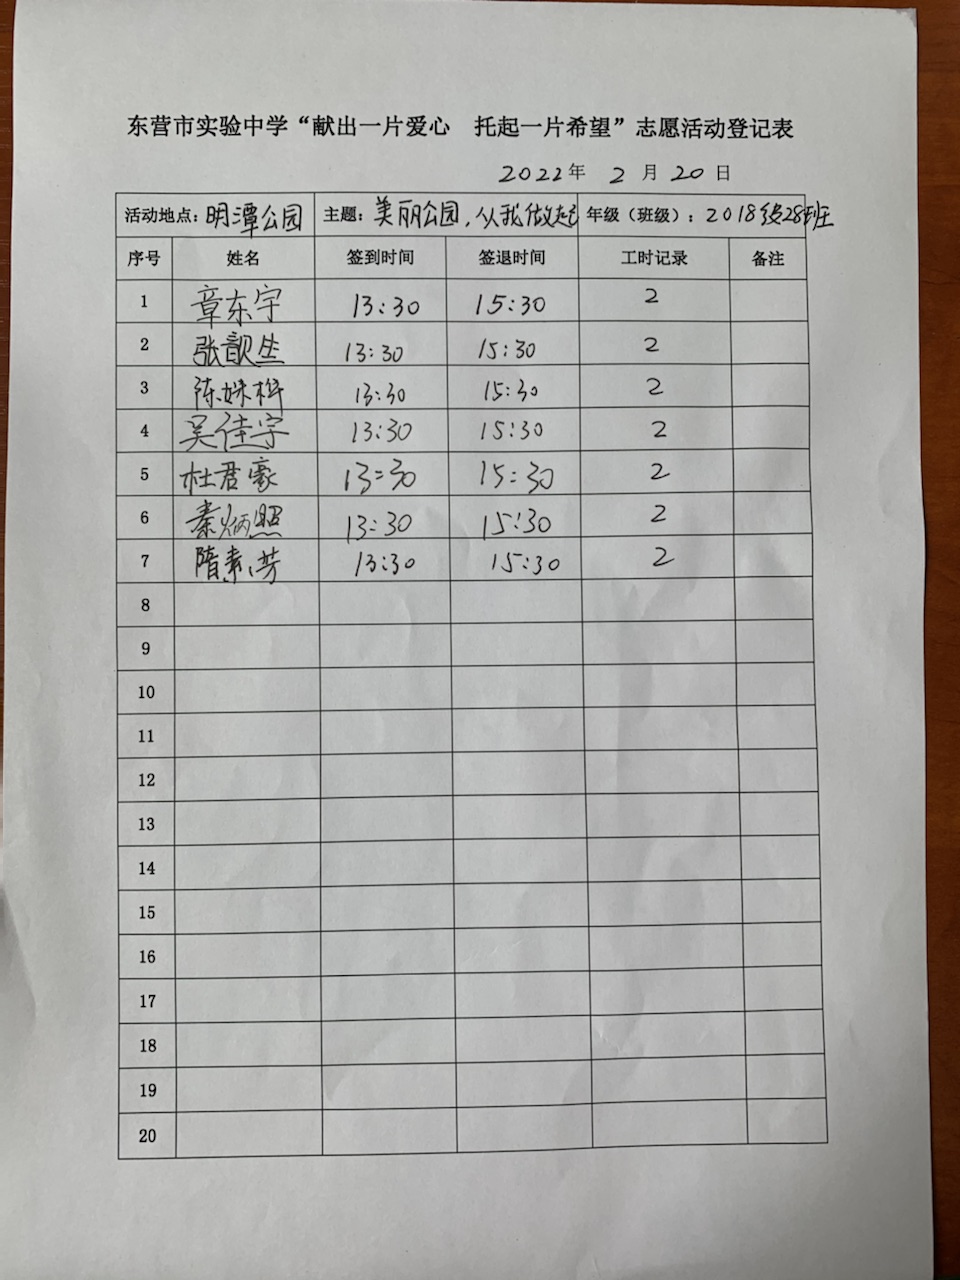 东营市实验中学“献出一片爱心 托起一片希望”志愿活动登记表
2022年 2 月 20 日
活动地点：明潭公园 主题：美丽公园，从我做起 年级（班级）：2018级28班
序号 姓名 签到时间 签退时间 工时记录 备注
1 章东宇 13:30 15:30 2
2 张歆 13:30 15:30 2
3 陈姝 13:30 15:30 2
4 吴佳宇 13:30 15:30 2
5 杜君豪 13:30 15:30 2
6 秦炳照 13:30 15:30 2
7 隋素芳 13:30 15:30 2
8
9
10
11
12
13
14
15
16
17
18
19
20